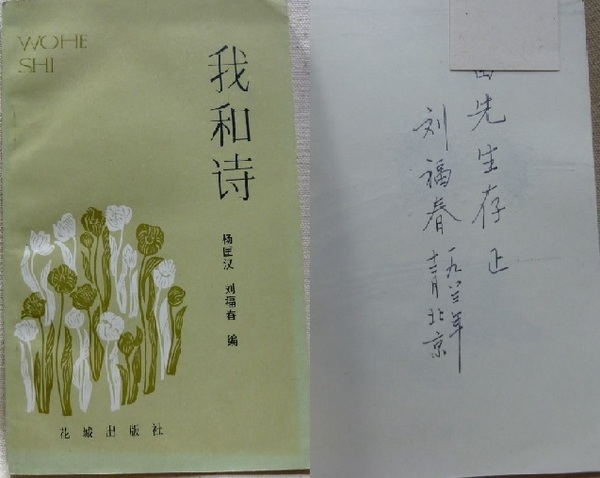 WOHE
SHI
我和诗
杨匡汉 刘福春 编
花城出版社
先生存正
刘福春
一九八三年
十二月北京